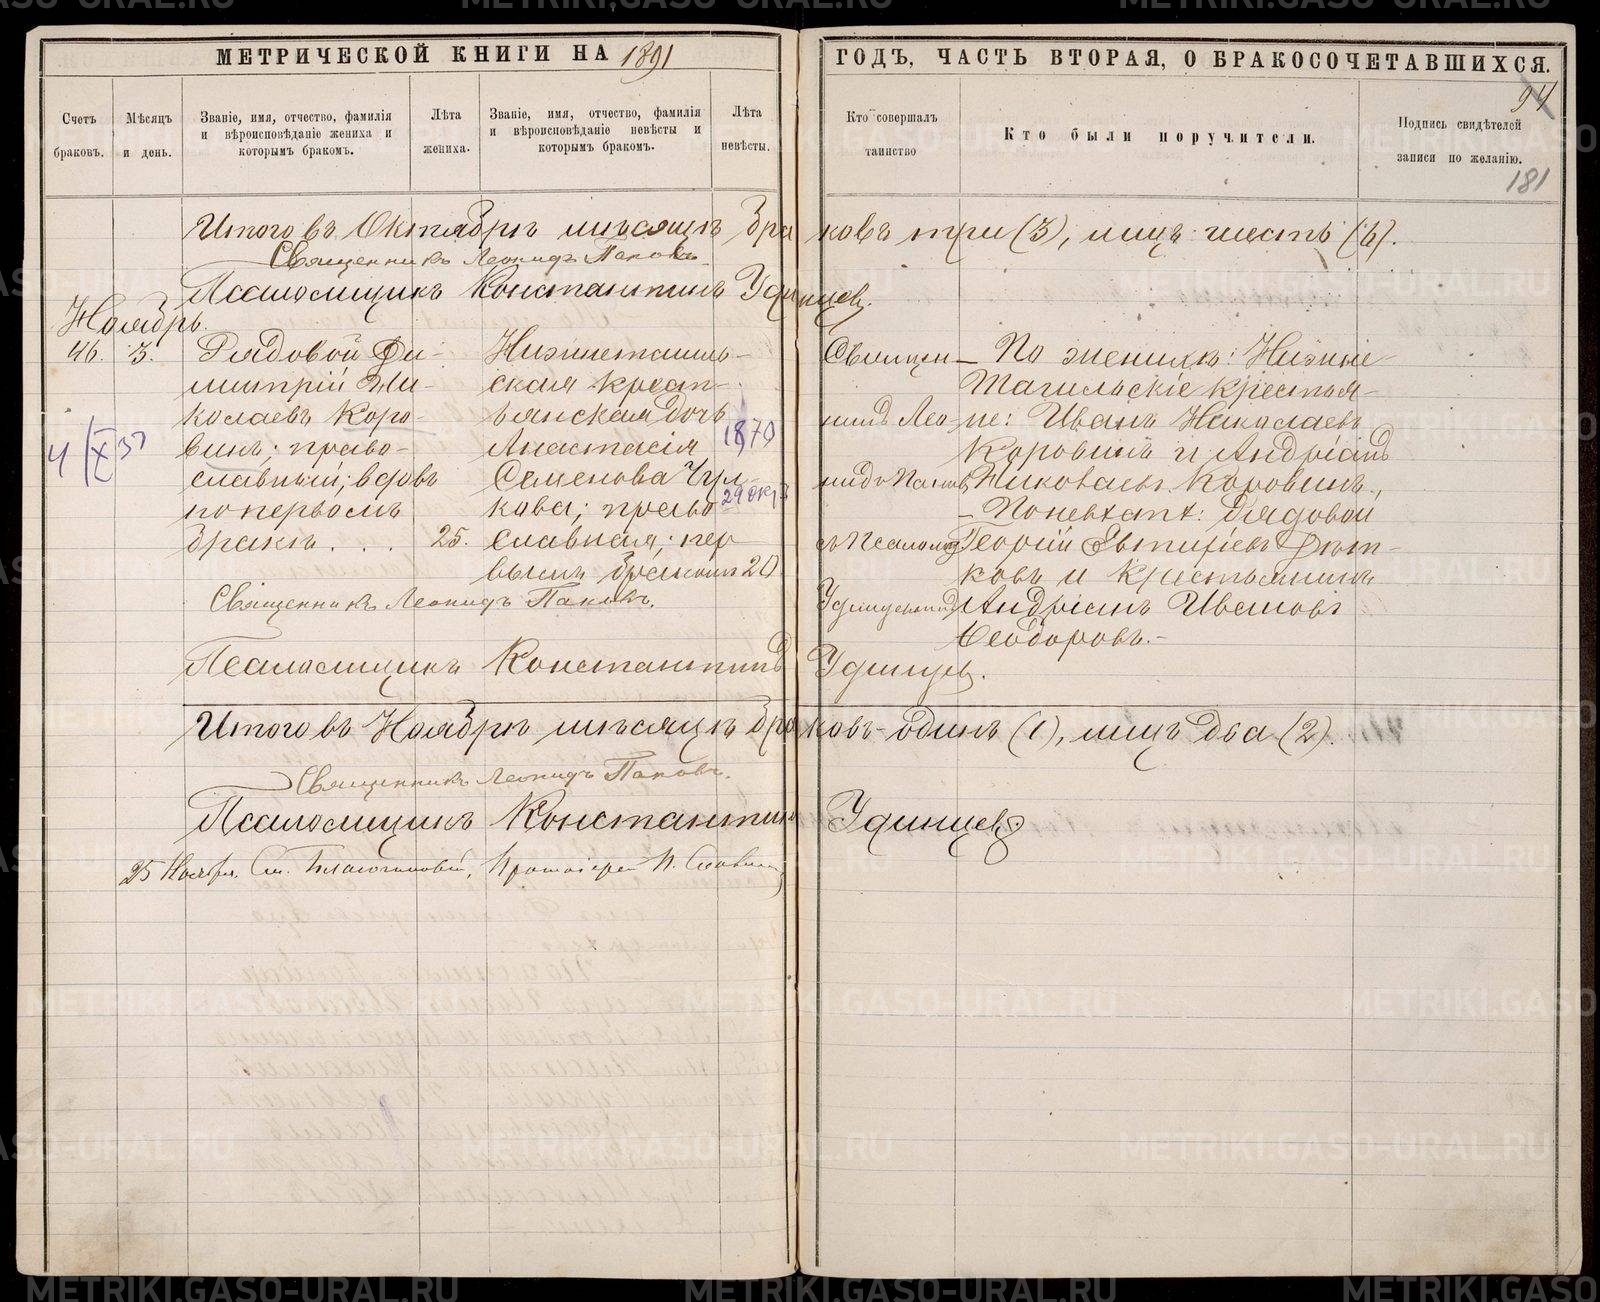 МЕТРИЧЕСКОЙ КНИГИ НА 1891
ГОДЪ, ЧАСТЬ ВТОРАЯ, О БРАКОСОЧЕТАВШИХСЯ.
94
181
Счетъ браковъ.
Мѣсяцъ и день.
Званіе, имя, отчество, фамилія
и вѣроисповѣданіе жениха и
которымъ бракомъ.
Лѣта жениха.
Званіе, имя, отчество, фамилія
и вѣроисповѣданіе невѣсты и
которымъ бракомъ.
Лѣта невѣсты.
Кто совершалъ таинство
Кто были поручители.
Подпись свидѣтелей
записи по желанію.
Итого въ Октябрѣ мѣсяцѣ браковъ три (3), лицъ шесть (6).
Священникъ Леонидъ Пановъ.
Псаломщикъ Константинъ Удинцев.
Ноябрь.
46. 3.
Рядовой Ди-
митрій Ни-
колаевъ Коро-
винъ; право-
славный; вдовъ
по первомъ
бракѣ . . . 25.
Нижнетагиль-
ская крест-
ьянская дочь
Анастасія
Семенова Чул-
кова; право-
славная; пер
вымъ бракомъ 20
1870
29 окт
4/X 37
Священ-
никъ Лео-
нидъ Панов
съ Псаломщ
Удинцевымъ
По женихѣ: Нижне-
Тагильскіе крестья-
не: Иванъ Николаевъ
Коровинъ и Андріанъ
Николаевъ Коровинъ,
– По невѣстѣ: Рядовой
Георгій Евтихіевъ Фит-
ковъ и крестьянинъ
Андріанъ Ивановъ
Ѳеодоровъ.–
Священникъ Леонидъ Пановъ.
Псаломщикъ Константинъ Удинцев.
Итого въ Ноябрѣ мѣсяцѣ браковъ – одинъ (1), лицъ два (2).
Священникъ Леонидъ Пановъ.
Псаломщикъ Константинъ Удинцевъ
25 Ноября. См. Благочинный, Протоіерей
METRIKI.GASO-URAL.RU